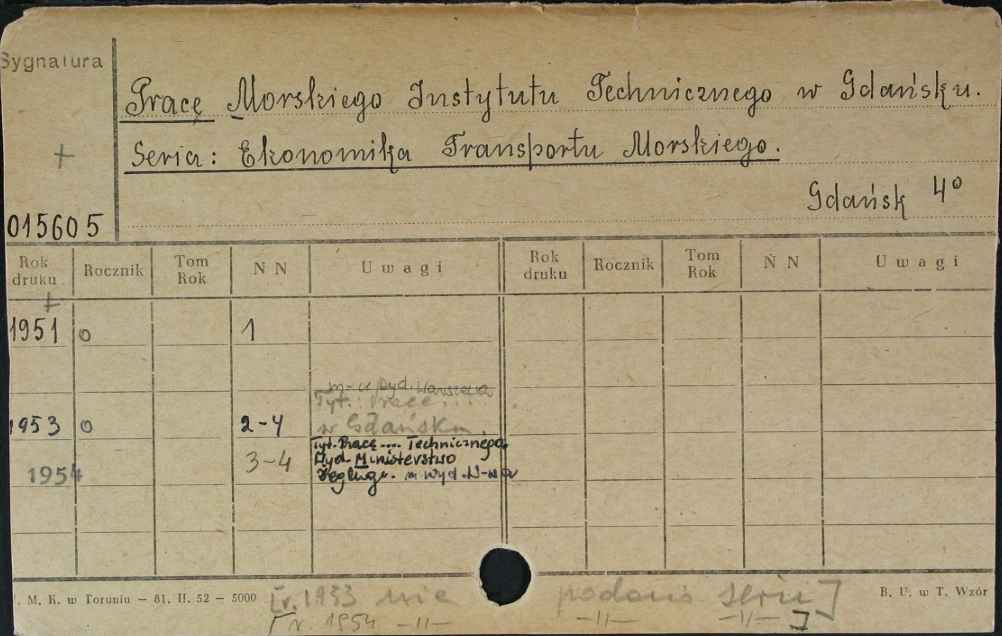 Sygnatura
Pracę Morskiego Instytutu Technicznego w Gdańsku.
+
Seria: Ekonomika Transportu Morskiego.
Gdańsk 4º
015605
Rok druku Rocznik Tom Rok N N Uwagi Rok druku Rocznik Tom Rok N N Uwagi
+
1951 o 1
m-ce wyd. Warszawa
Tyt. Pracę ...
1953 o 2-4 w Gdańsku.
Tyt. Pracę .... Technicznego
1954 3-4 Wyd. Ministerstwo
Żeglugi. m wyd. W-wa
. M. K. w Toruniu — 81. II. 52 — 5000 [r. 1953 nie podano serii] B. U. w T. Wzór
[r. 1954 -||- -||- -||-]